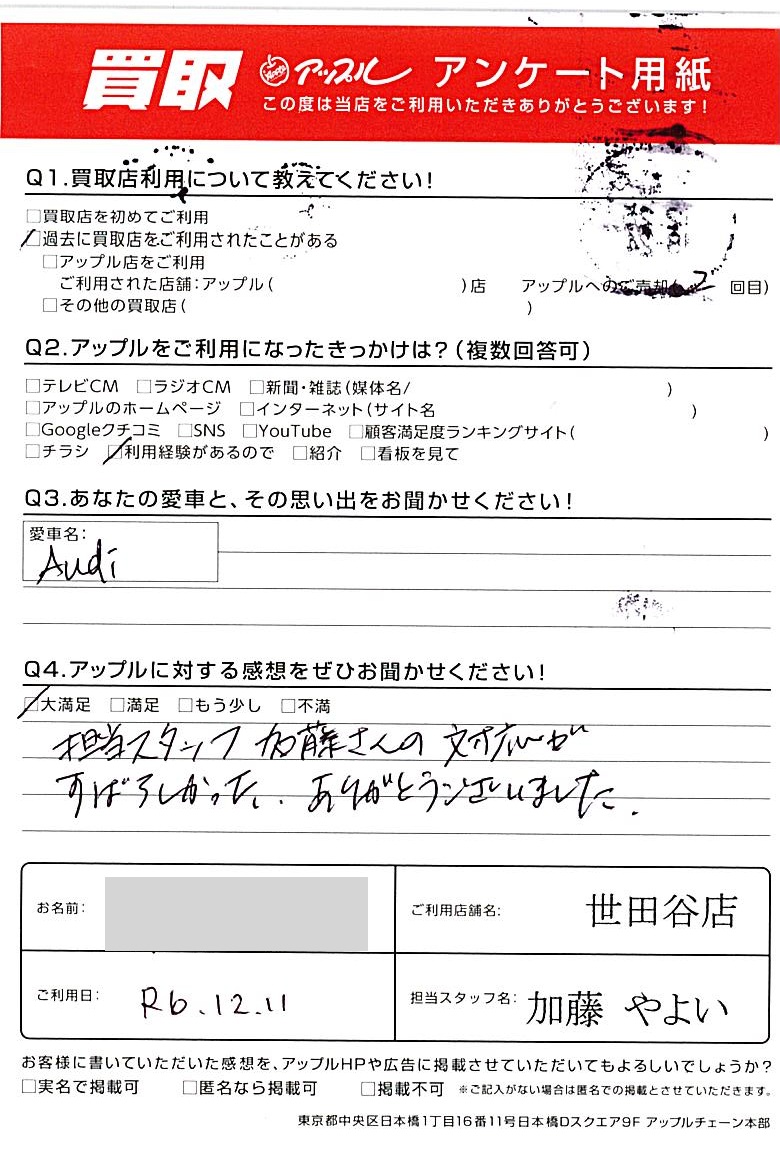 買取 アップル アンケート用紙
この度は当店をご利用いただきありがとうございます!
Q1.買取店利用について教えてください!
□買取店を初めてご利用
□過去に買取店をご利用されたことがある
□アップル店をご利用
ご利用された店舗:アップル( )店 アップルへのご売却( 2 回目)
□その他の買取店( )
Q2.アップルをご利用になったきっかけは?(複数回答可)
□テレビCM □ラジオCM □新聞・雑誌(媒体名/ )
□アップルのホームページ □インターネット(サイト名 )
□Googleクチコミ □SNS □YouTube □顧客満足度ランキングサイト( )
□チラシ □利用経験があるので □紹介 □看板を見て
Q3.あなたの愛車と、その思い出をお聞かせください!
愛車名:
Audi
Q4.アップルに対する感想をぜひお聞かせください!
□大満足 □満足 □もう少し □不満
担当スタッフ 加藤さんの 対応が
すばらしかった。ありがとうございました.
お名前:
ご利用店舗名: 世田谷店
ご利用日: R6.12.11
担当スタッフ名: 加藤 やよい
お客様に書いていただいた感想を、アップルHPや広告に掲載させていただいてもよろしいでしょうか?
□実名で掲載可 □匿名なら掲載可 □掲載不可 ※ご記入がない場合は匿名での掲載とさせていただきます。
東京都中央区日本橋1丁目16番11号日本橋Dスクエア9F アップルチェーン本部